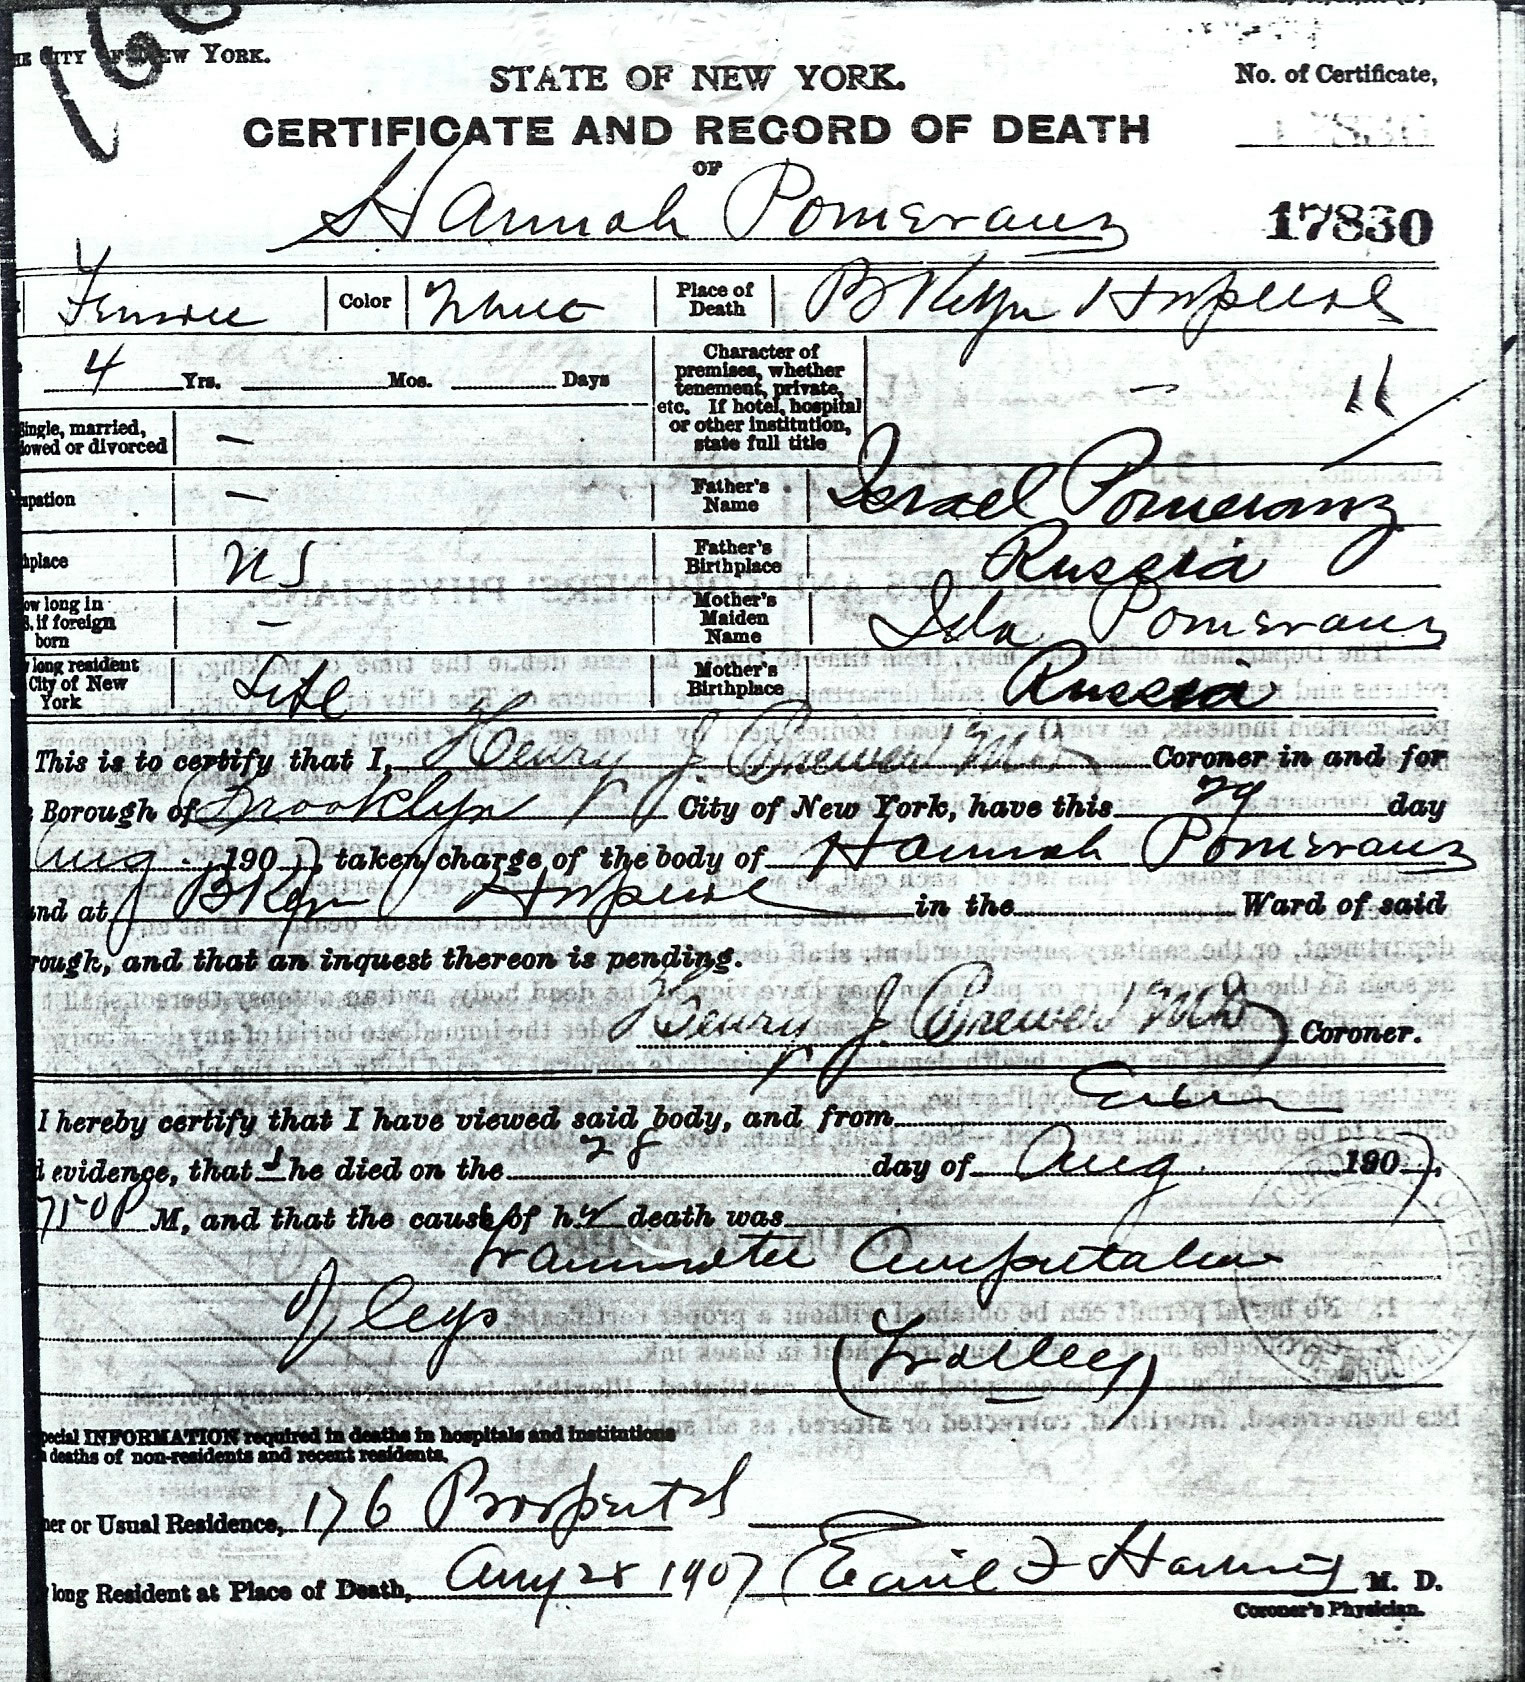 HE CITY OF NEW YORK.
STATE OF NEW YORK.
No. of Certificate,
CERTIFICATE AND RECORD OF DEATH
OF
Hannah Pomeranz
17830
Female Color White Place of Death Bklyn Hospital
4 Yrs. Mos. Days
Character of premises, whether tenement, private, etc. If hotel, hospital or other institution, state full title — 11
Single, married, owed or divorced —
upation —
Father's Name Israel Pomeranz
hplace US
Father's Birthplace Russia
ow long in S. if foreign born —
Mother's Maiden Name Ida Pomeranz
long resident City of New York Life
Mother's Birthplace Russia
This is to certify that I, Henry J. Brewer MD Coroner in and for
Borough of Brooklyn City of New York, have this 29 day
Aug. 1907, taken charge of the body of Hannah Pomeranz
und at Bklyn Hospital in the Ward of said
rough, and that an inquest thereon is pending.
Henry J. Brewer MD Coroner.
I hereby certify that I have viewed said body, and from
d evidence, that she died on the 28 day of Aug. 1907,
750P M, and that the cause of her death was
Traumatic Amputation
of legs
(Trolley)
pecial INFORMATION required in deaths in hospitals and institutions
deaths of non-residents and recent residents.
mer or Usual Residence, 176 Prospect
long Resident at Place of Death, Aug 28 1907 Emil F Hartung M. D.
Coroner's Physician.